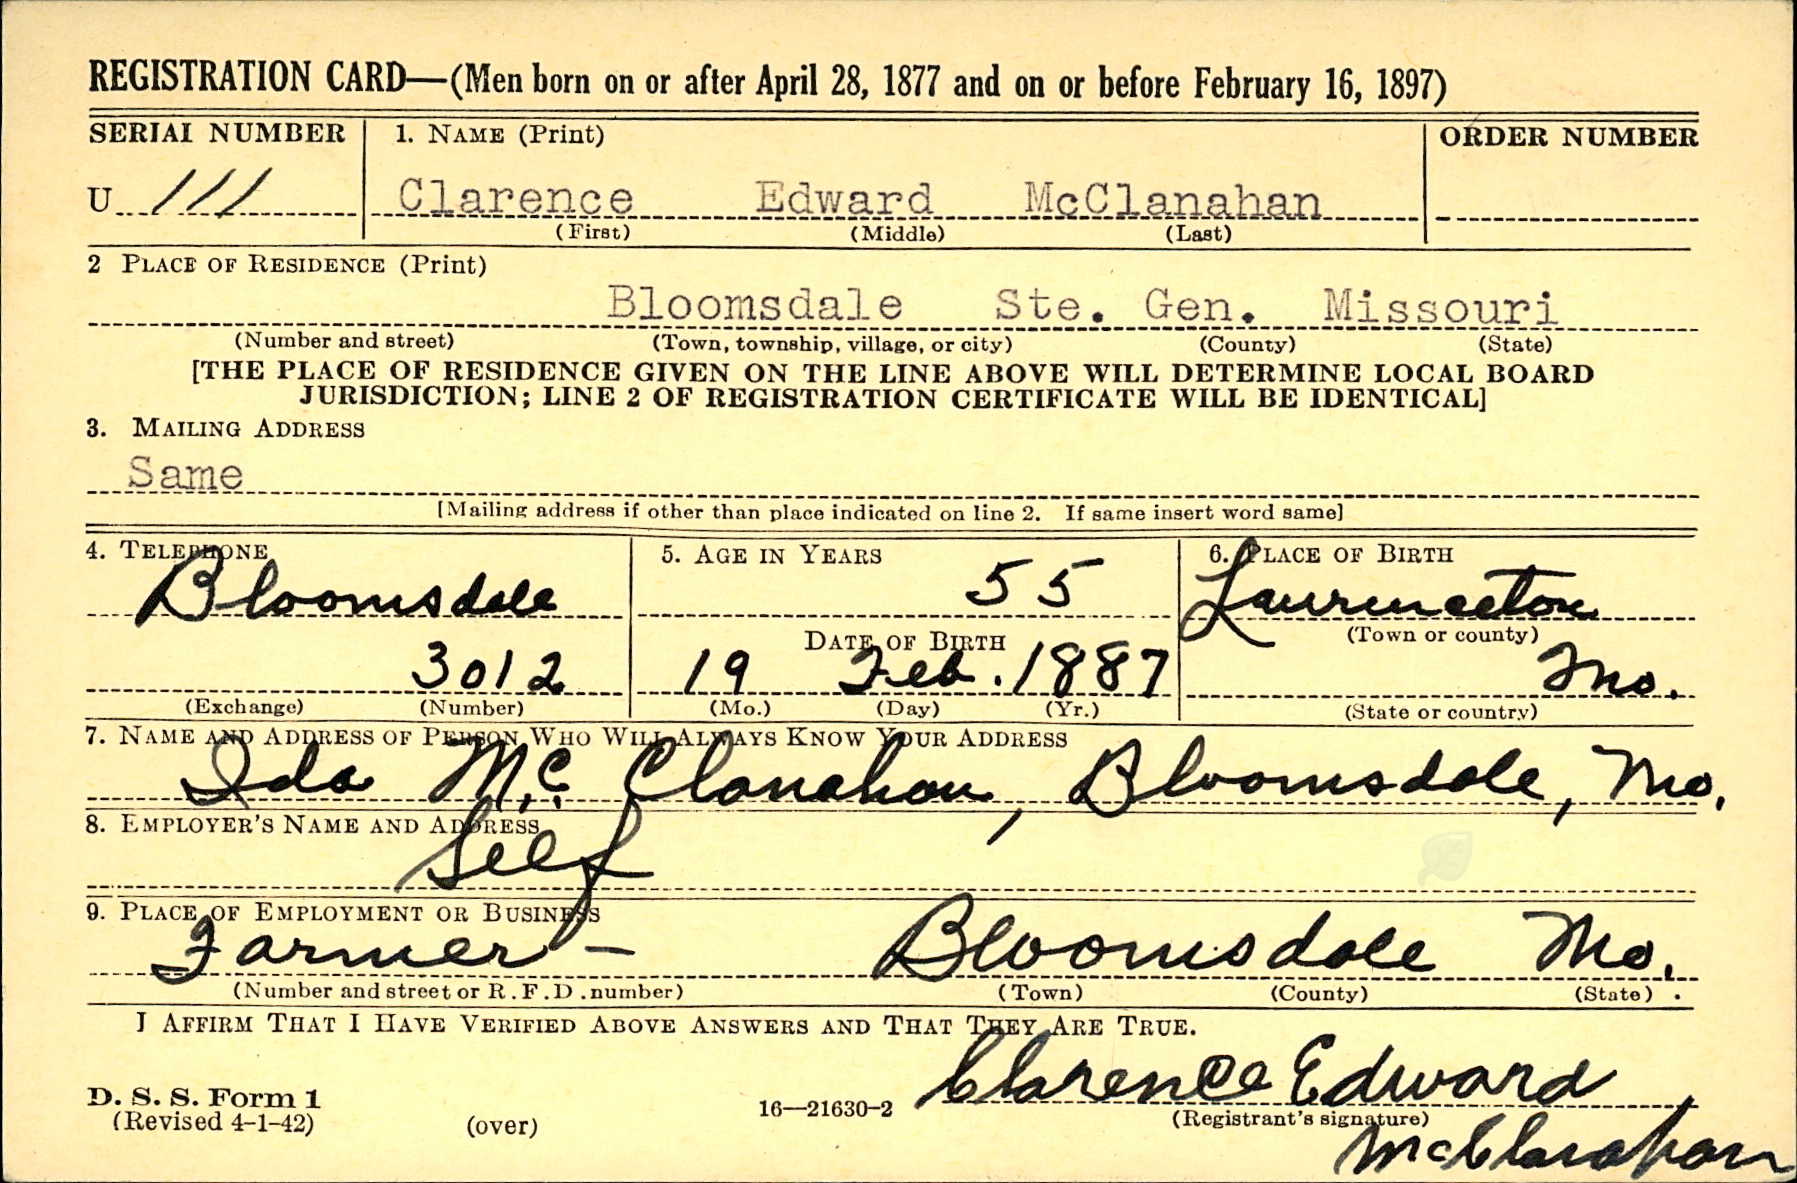 REGISTRATION CARD—(Men born on or after April 28, 1877 and on or before February 16, 1897)
SERIAL NUMBER 1. NAME (Print) ORDER NUMBER
U 111 Clarence Edward McClanahan
(First) (Middle) (Last)
2 PLACE OF RESIDENCE (Print)
Bloomsdale Ste. Gen. Missouri
(Number and street) (Town, township, village, or city) (County) (State)
[THE PLACE OF RESIDENCE GIVEN ON THE LINE ABOVE WILL DETERMINE LOCAL BOARD
JURISDICTION; LINE 2 OF REGISTRATION CERTIFICATE WILL BE IDENTICAL]
3. MAILING ADDRESS
Same
[Mailing address if other than place indicated on line 2. If same insert word same]
4. TELEPHONE 5. AGE IN YEARS 6. PLACE OF BIRTH
Bloomsdale 55 Laurenceton
DATE OF BIRTH (Town or county)
3012 19 Feb. 1887 Mo.
(Exchange) (Number) (Mo.) (Day) (Yr.) (State or country)
7. NAME AND ADDRESS OF PERSON WHO WILL ALWAYS KNOW YOUR ADDRESS
Ida Mc Clanahan, Bloomsdale, Mo.
8. EMPLOYER'S NAME AND ADDRESS
Self
9. PLACE OF EMPLOYMENT OR BUSINESS
Farmer — Bloomsdale Mo.
(Number and street or R.F.D. number) (Town) (County) (State)
I AFFIRM THAT I HAVE VERIFIED ABOVE ANSWERS AND THAT THEY ARE TRUE.
Clarence Edward
D. S. S. Form 1
(Revised 4-1-42) (over) 16—21630-2 (Registrant's signature)
McClanahan